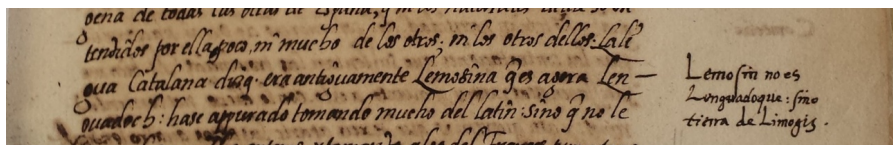 gena de todas las otras de España, y ni los naturales
tendidos por ella poco, ni mucho de los otros; ni los otros dellos. La lē
gua Catalana dizq. era antiguamente Lemosina q̃ es agora Len-
guadoch: hase apurado tomando mucho del latin: sino q̃ no le
Lemosin no es
Lenguadoque: sino
tierra de Limogis.